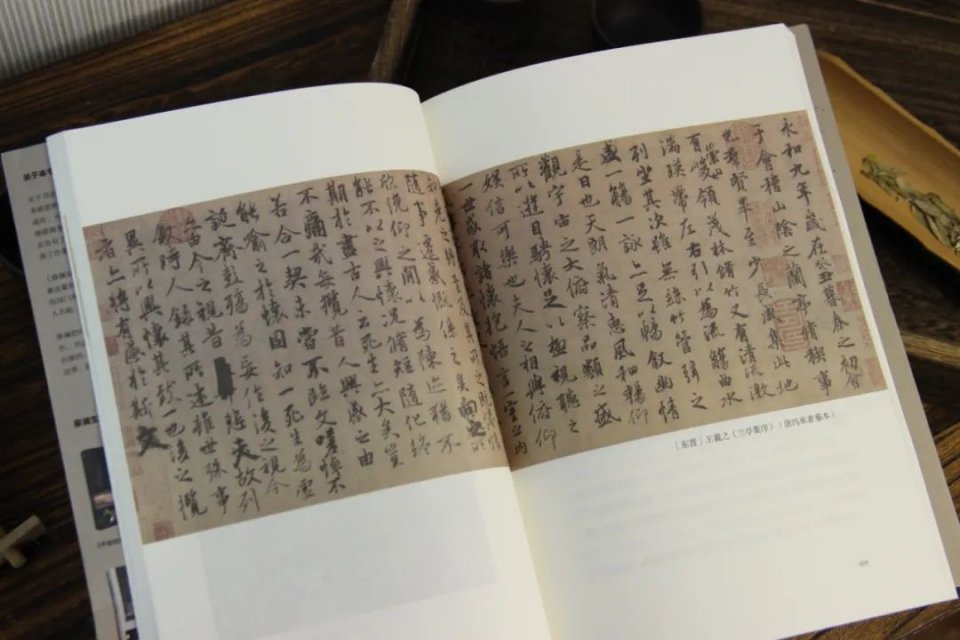 永和九年歲在癸丑暮春之初會
于會稽山陰之蘭亭脩禊事
也羣賢畢至少長咸集此地
有崇山峻領茂林脩竹又有清流激
湍暎帶左右引以為流觴曲水
列坐其次雖無絲竹管弦之
盛一觴一詠亦足以暢敘幽情
是日也天朗氣清惠風和暢仰
觀宇宙之大俯察品類之盛
所以遊目騁懷足以極視聽之
娛信可樂也夫人之相與俯仰
一世或取諸懷抱悟言一室之內
隨事遷感慨係之矣向之所
欣俛仰之閒以為陳迹猶不
能不以之興懷況脩短隨化終
期於盡古人云死生亦大矣豈
不痛哉每攬昔人興感之由
若合一契未嘗不臨文嗟悼不
能喻之於懷固知一死生為虛
誕齊彭殤為妄作後之視今
亦由今之視昔悲夫故列
敘時人錄其所述雖世殊事
異所以興懷其致一也後之攬
者亦將有感於斯文
［东晋］王羲之《兰亭集序》（唐冯承素摹本）
关于本